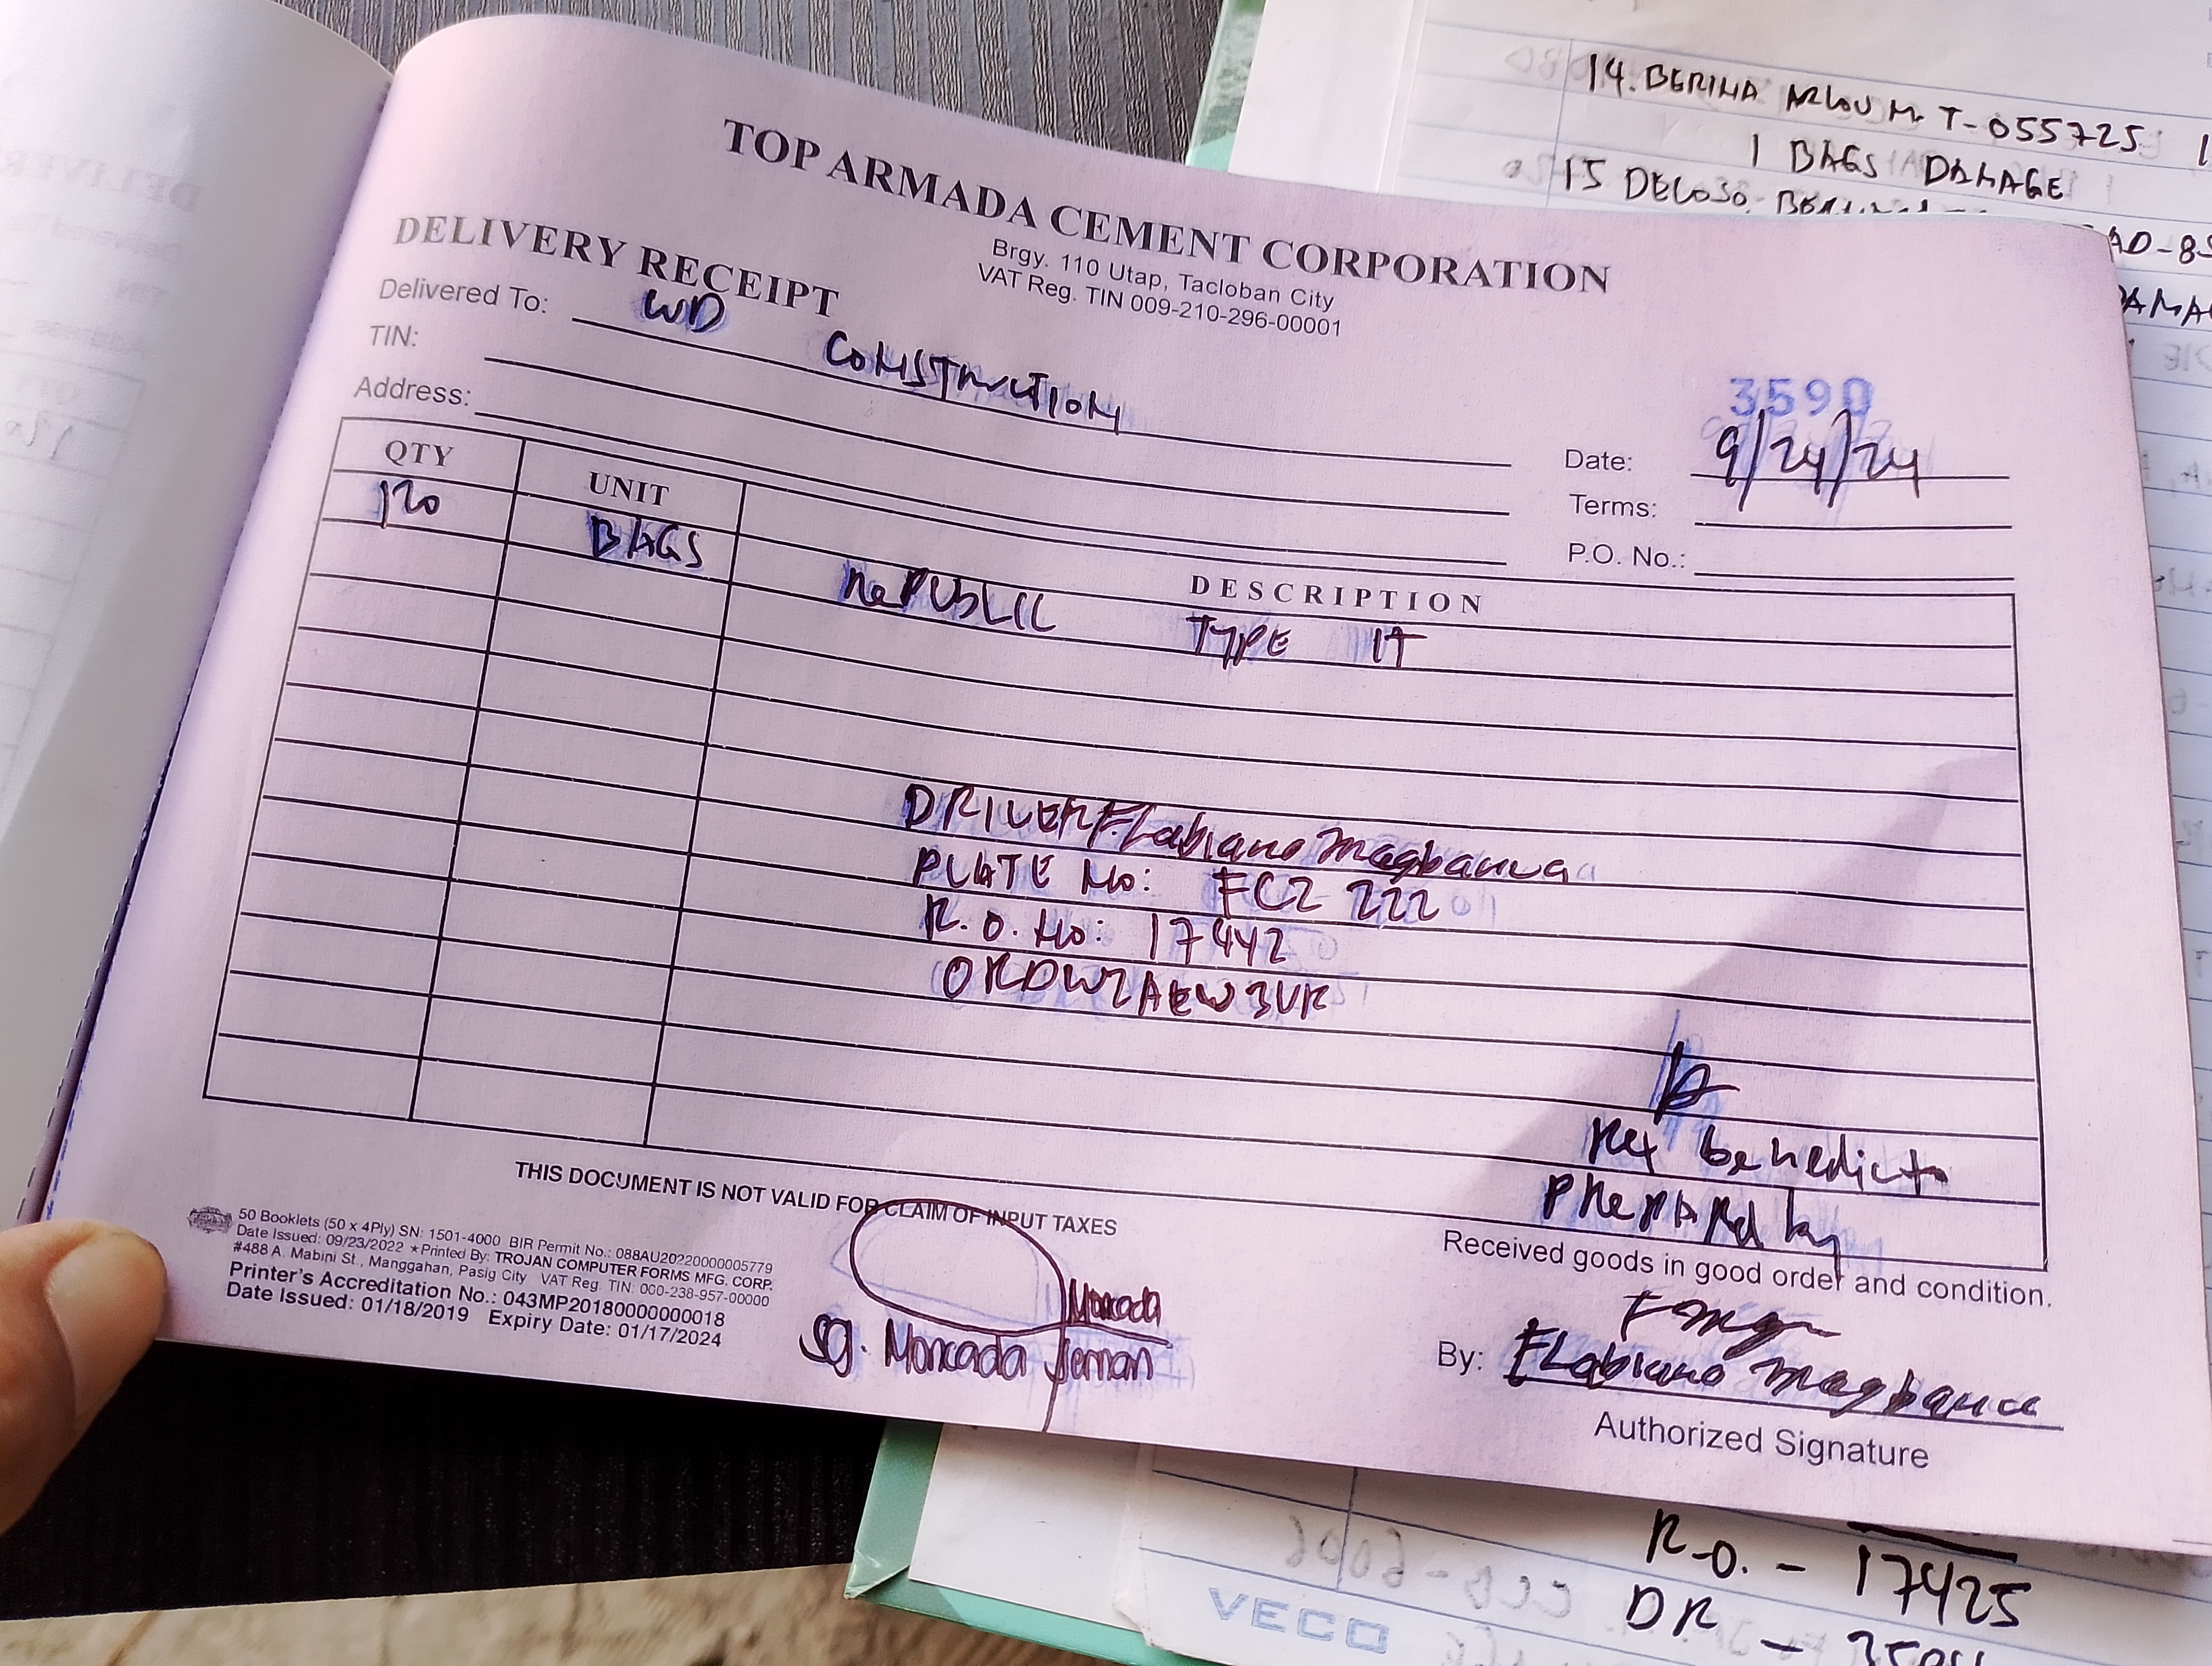 TOP ARMADA CEMENT CORPORATION
Brgy. 110 Utap, Tacloban City
VAT Reg. TIN 009-210-296-00001
DELIVERY RECEIPT
Delivered To: WD CONSTRUCTION
TIN:
Address:
3590
Date: 9/24/24
Terms:
P.O. No.:
QTY UNIT DESCRIPTION
120 BAGS RePUBLIC TYPE 1T
DRIVER: FLabiano Magbanua
PLATE No: FCZ 222
R.O. No: 17442
ORDWZAEW3UR
Rex benedict
PRePARed by
THIS DOCUMENT IS NOT VALID FOR CLAIM OF INPUT TAXES
50 Booklets (50 x 4Ply) SN: 1501-4000 BIR Permit No.: 088AU20220000005779
Date Issued: 09/23/2022 ★Printed By: TROJAN COMPUTER FORMS MFG. CORP.
#488 A. Mabini St., Manggahan, Pasig City VAT Reg. TIN: 000-238-957-00000
Printer's Accreditation No.: 043MP20180000000018
Date Issued: 01/18/2019 Expiry Date: 01/17/2024
Moncada
Sg. Moncada Jeman
Received goods in good order and condition.
By: FLabiano Magbanua
Authorized Signature
14. BERINA ARLOU M. T-055725
1 BAGS DAMAGE
15 DELOSO
AD-85
R.O. - 17425
DR -
VECO